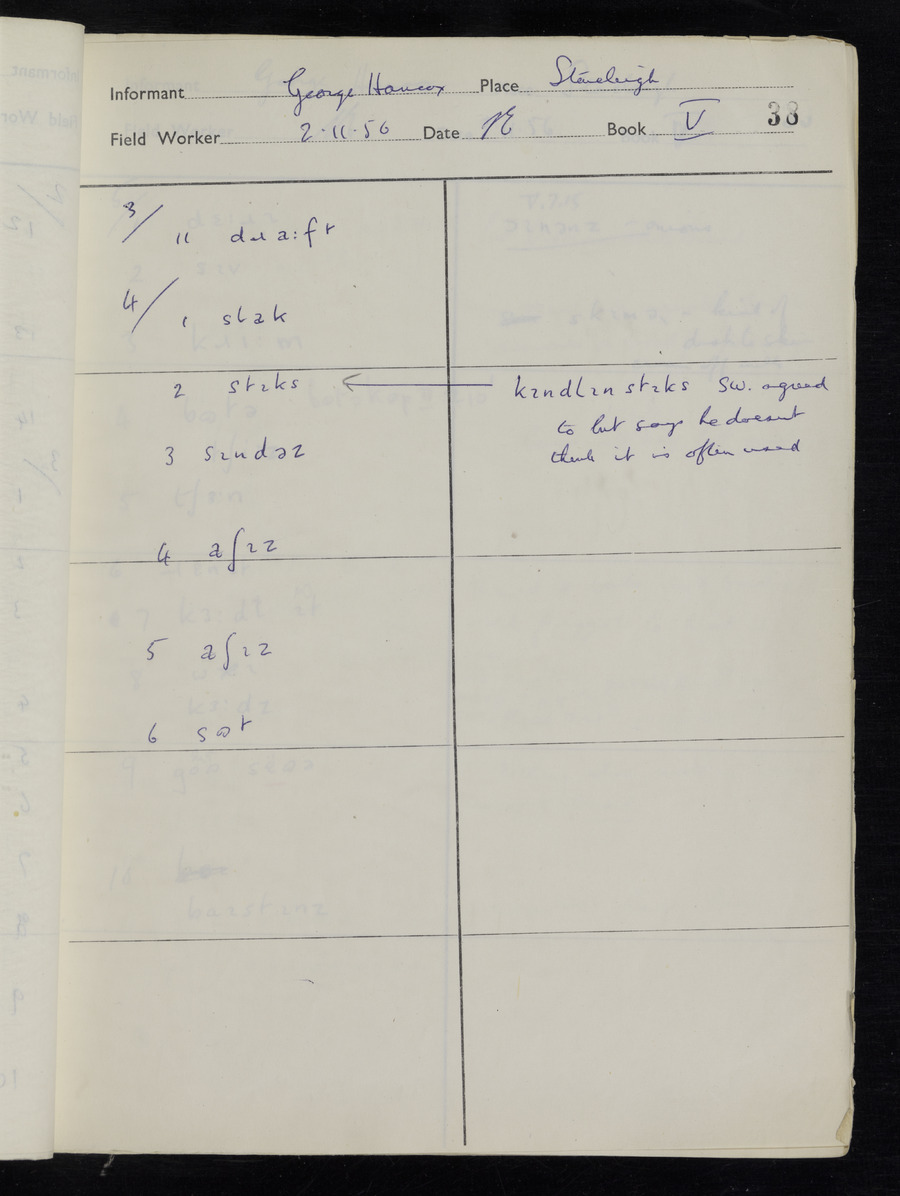 Informant George Hancox Place Stoneleigh
Field Worker 2.11.56 Date Book V 38
3/ 11 dɹaːft
4/ 1 slak
2 stɪks ← kɪndlɪn stɪks sw. agreed
to but says he doesnt
think it is often used
3 sɪndəz
4 aʃɪz
5 aʃɪz
6 sɷt